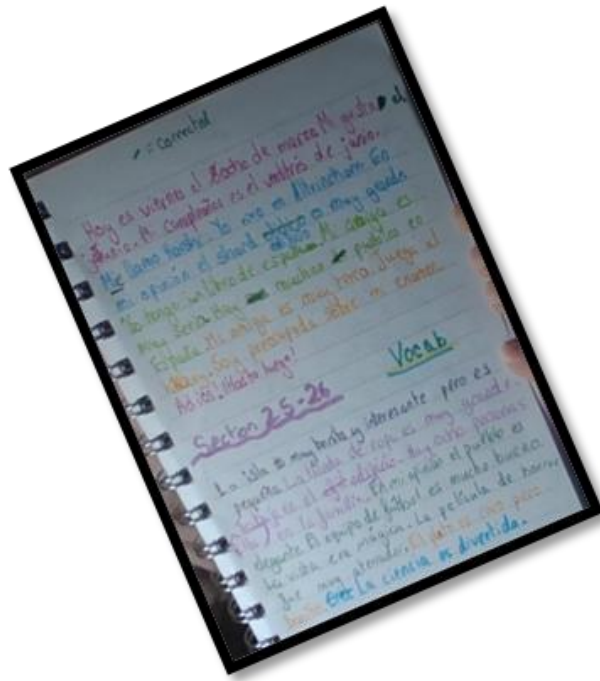 = corrected
Hoy es viernes el ocho de marzo Mi gusta el
junio. Mi cumpleaños es el veintrés de junio.
Me llamo Yo vivo en Altrincham En
mi opinión el shard es muy grande
Yo tengo un libro de español Mi amiga es
muy seria Hay muchos pueblos en
España Mi amiga es muy rara. Juega al
Soy preocupada sobre mi examen.
Adios! Hasta luego!
Vocab
Section 25-26
La isla es muy bonita y interesante pero es
pequeña La tienda de ropa es muy grande.
es el edificio. Hay ocho personas
en la familia. En mi opinión el pueblo es
elegante El equipo de fútbol es mucho bueno.
La vista era mágica. La película de horror
fue muy aterrador. El país es caro pero
bonito La ciencia es divertida.